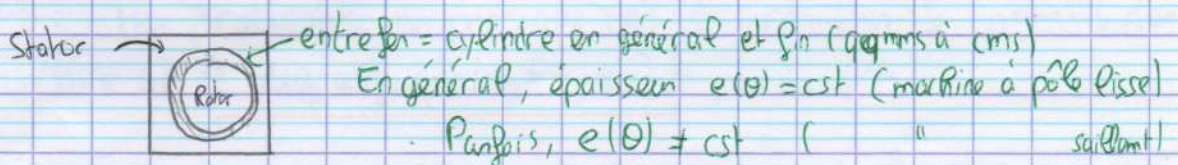 Stator → entrefer = cylindre en général et fin (qq mms à cms)
Rotor
En général, épaisseur e(θ) = cst (machine à pôle lisse)
Parfois, e(θ) ≠ cst ( " saillant)